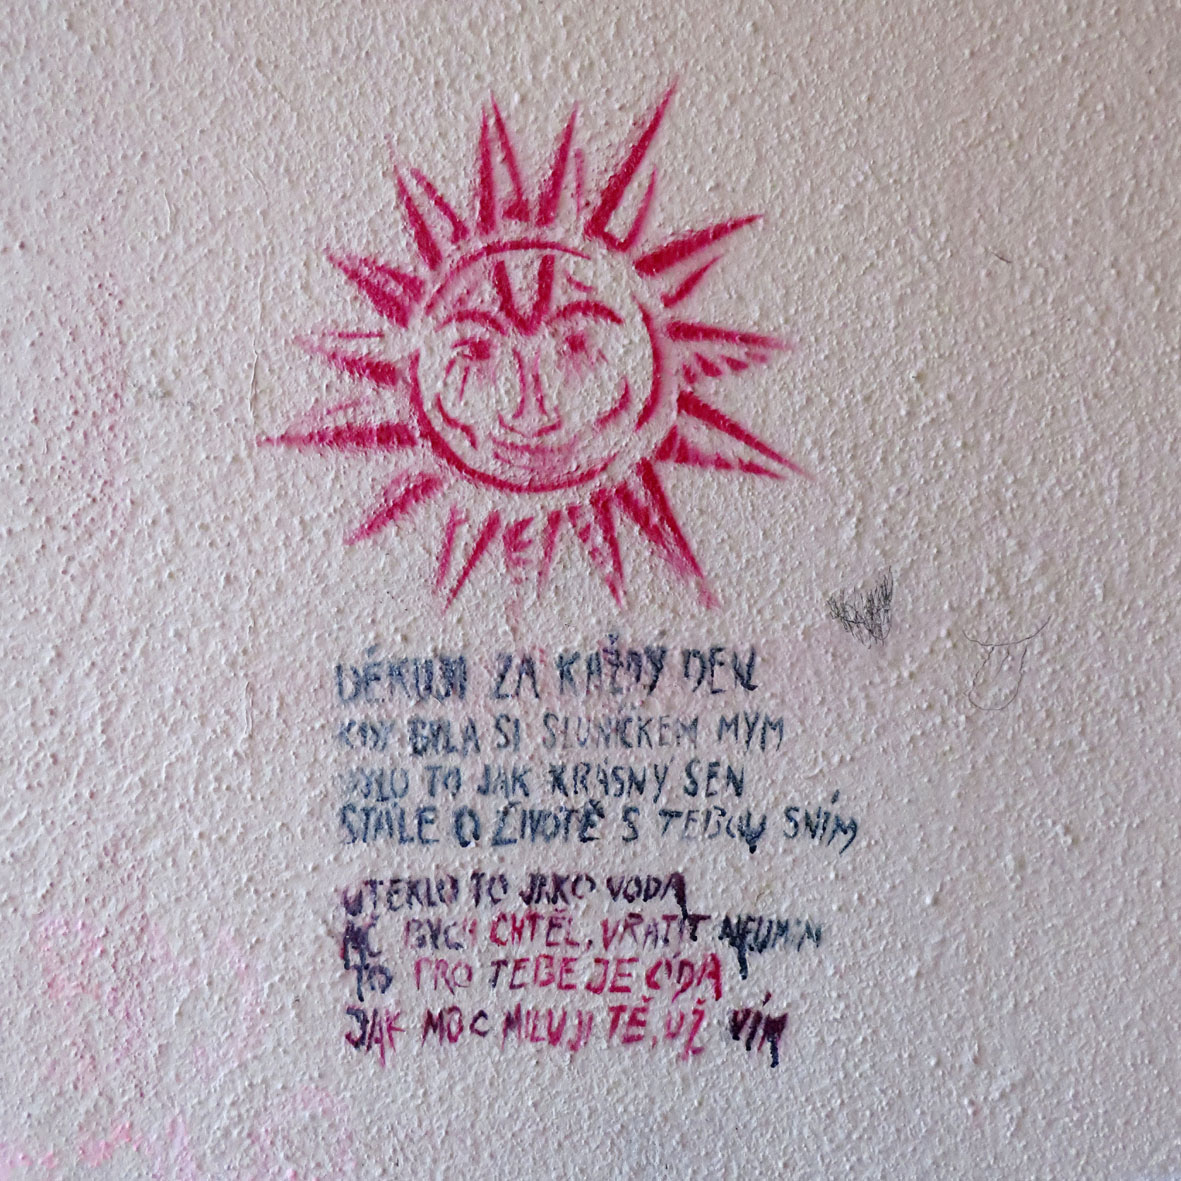 DĚKUJI ZA KAŽDÝ DEN
KDY BYLA SI SLUNÍČKEM MÝM
BYLO TO JAK KRÁSNÝ SEN
STÁLE O ŽIVOTĚ S TEBOU SNÍM
UTEKLO TO JAKO VODA
AČ BYCH CHTĚL, VRÁTIT NEUMÍM
TO PRO TEBE JE ÓDA
JAK MOC MILUJI TĚ, UŽ VÍM